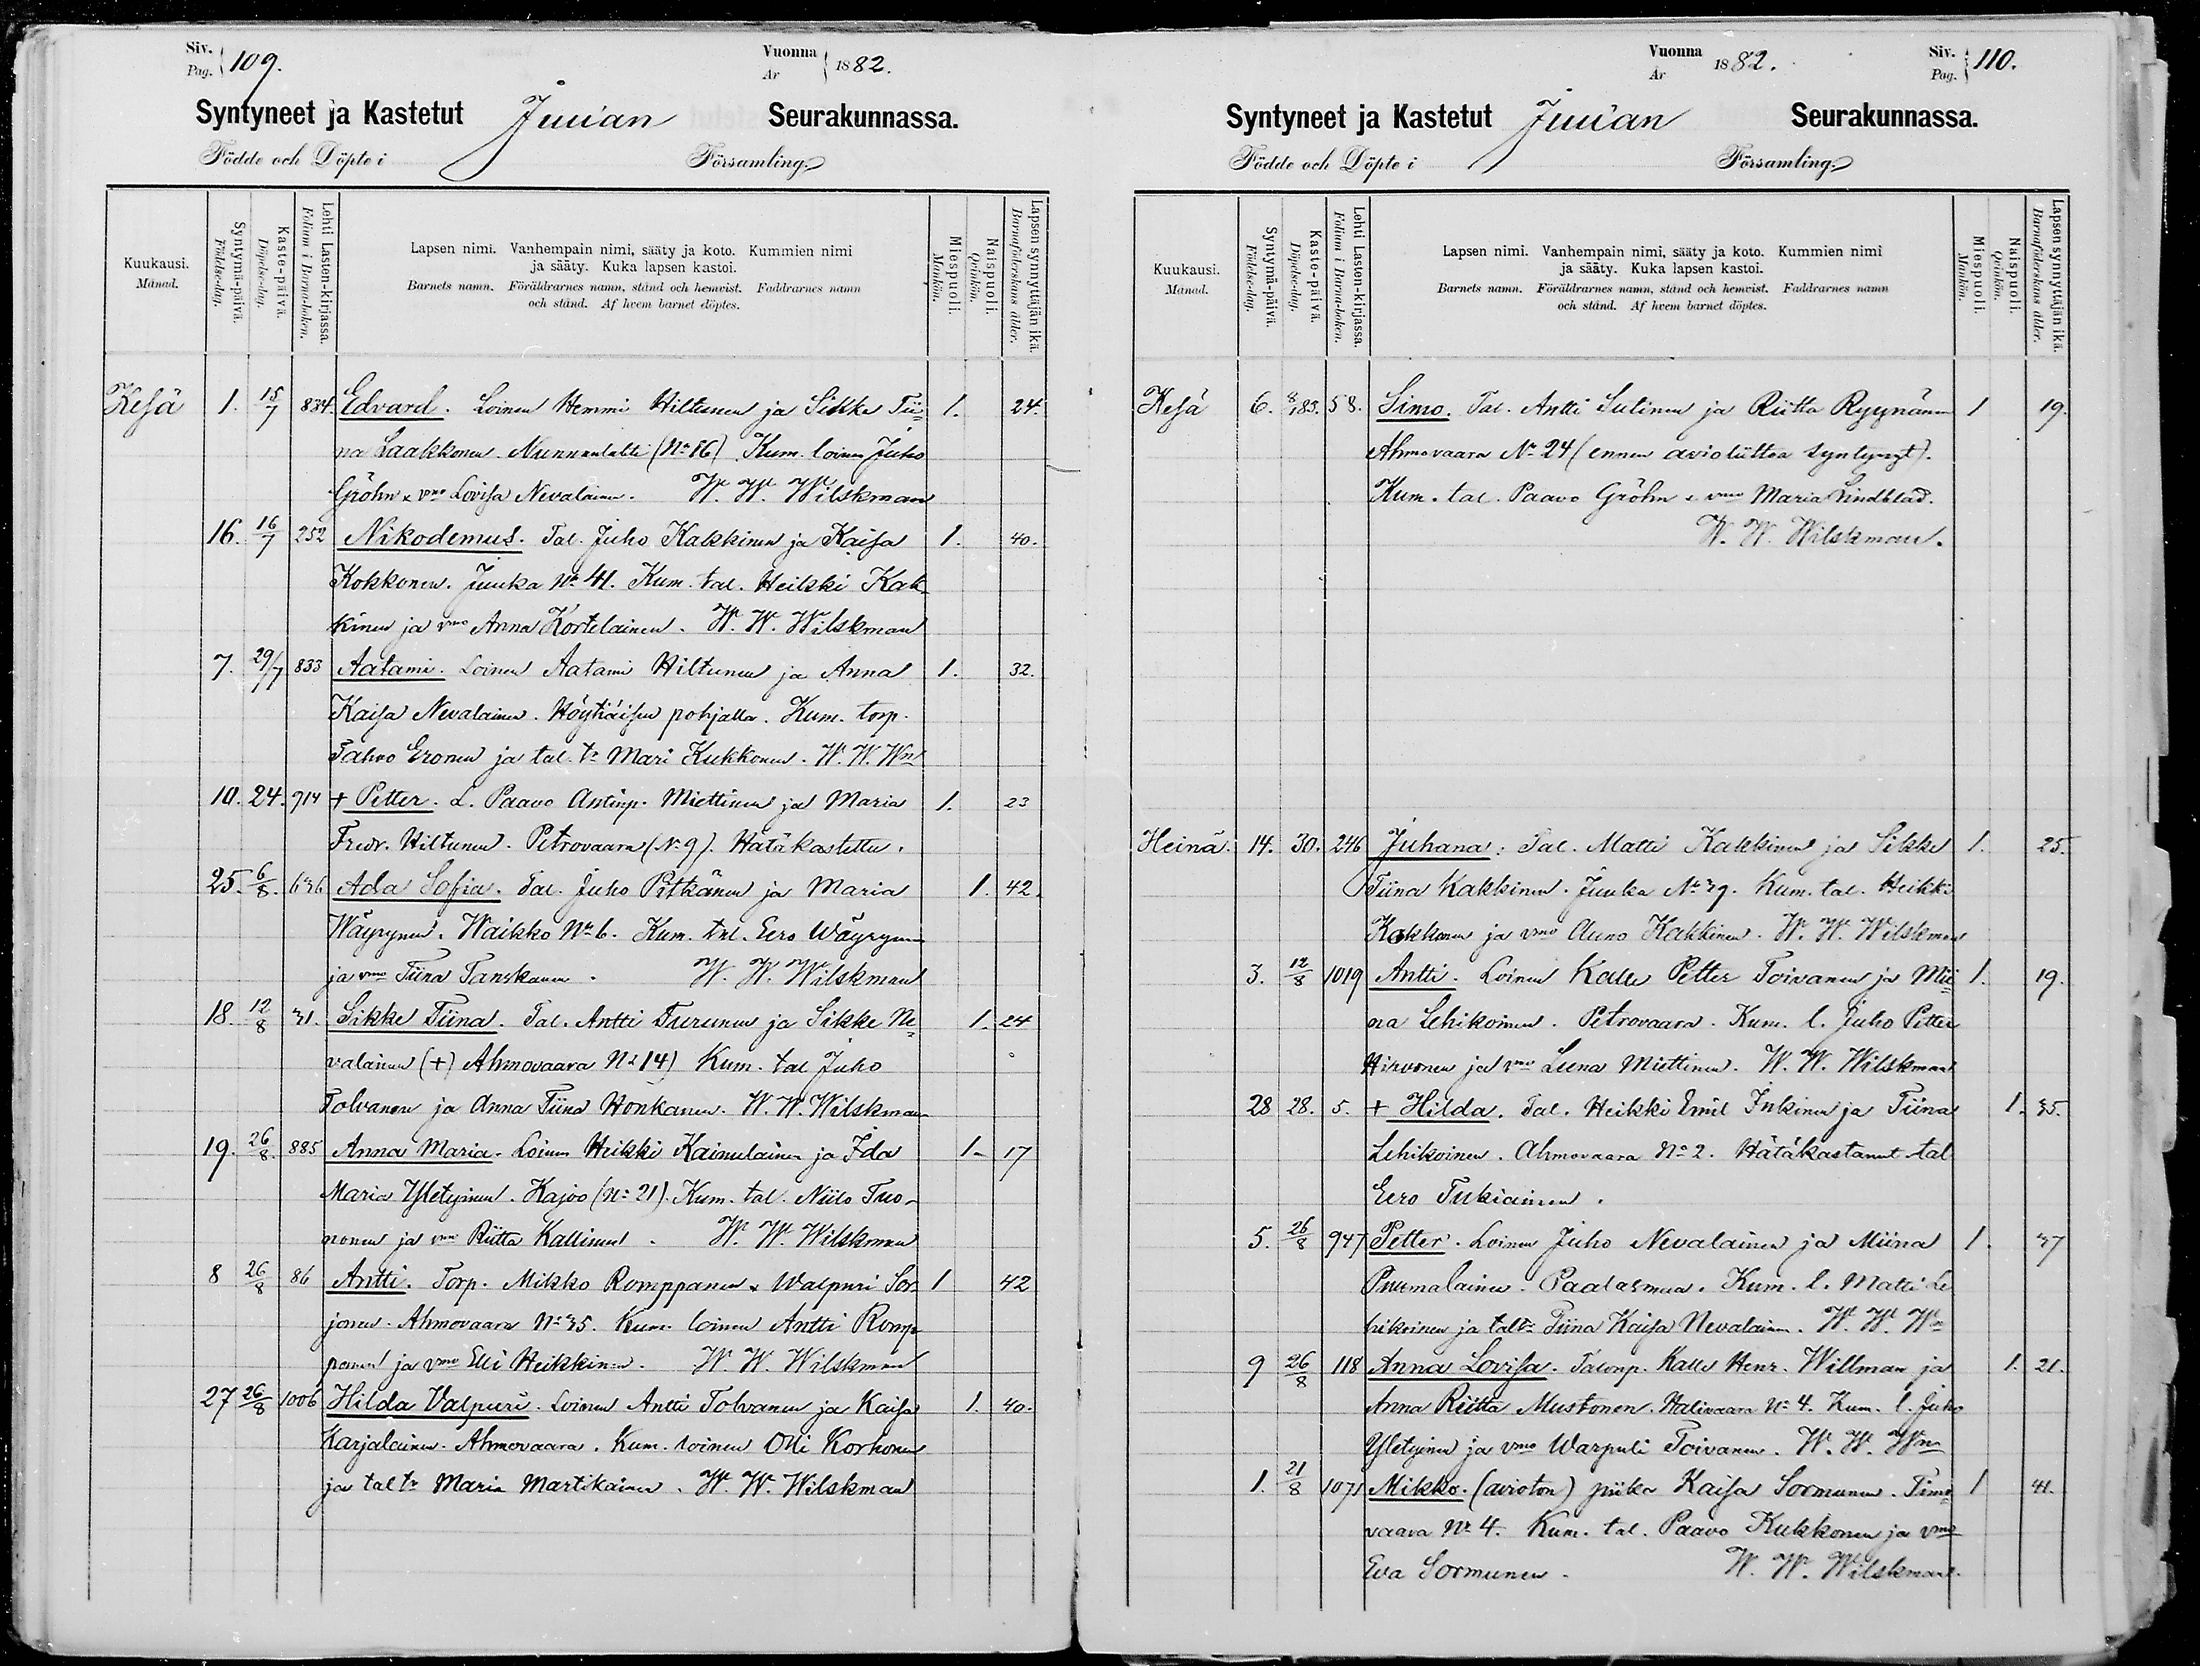 Siv. Pag. 109. Vuonna År 1882.
Syntyneet ja Kastetut Juuan Seurakunnassa.
Födde och Döpte i Församling.
Kuukausi. Månad.
Syntymä-päivä. Födelse-dag.
Kaste-päivä. Döpelse-dag.
Lehti Lasten-kirjassa. Folium i Barna-boken.
Lapsen nimi. Vanhempain nimi, sääty ja koto. Kummien nimi
ja sääty. Kuka lapsen kastoi.
Barnets namn. Föräldrarnes namn, stånd och hemvist. Faddrarnes namn
och stånd. Af hvem barnet döptes.
Miespuoli. Mankön.
Naispuoli. Qvinkön.
Lapsen synnyttäjän ikä. Barnaföderskans ålder.
Kesä 1. 15/7 834. Edvard. Loinen Hemmi Hiltunen ja Sikke Tii= 1. 24.
na Laakkonen. Nunnanlahti (No 16) Kum. loinen Juho
Gröhn & vmo Lovisa Nevalainen. W. W. Wilskman
16. 16/7 252 Nikodemus. Tal. Juho Kakkinen ja Kaisa 1. 40.
Kokkonen. Juuka No 41. Kum. tal. Heikki Kak
kinen ja vmo Anna Kortelainen. W. W. Wilskman
7. 29/7 833 Aatami. Loinen Aatami Hiltunen ja Anna 1. 32.
Kaisa Nevalainen. Höytiäisen pohjalla. Kum. torp.
Tahvo Eronen ja tal. tr Mari Kukkonen. W. W. Wn
10. 24. 914 + Petter. L. Paavo Antinp. Miettinen ja Maria 1. 23
Fredr. Hiltunen. Petrovaara (No 9). Hätäkastettu.
25. 6/8. 636 Ada Sofia. Tal. Juho Pitkänen ja Maria 1. 42.
Wäyrynen. Waikko No 6. Kum. tal. Eero Wäyrynen
ja vmo Tiina Tanskanen. W. W. Wilskman
18. 12/8 31. Sikke Tiina. Tal. Antti Turunen ja Sikke Ne= 1. 24
valainen (+) Ahmovaara No 14) Kum. tal Juho
Tolvanen ja Anna Tiina Honkanen. W. W. Wilskman
19. 26/8. 885 Anna Maria. Loinen Heikki Kainulainen ja Ida 1. 17
Maria Yletyinen. Kajoo (No 21). Kum. tal. Niilo Tuo-
nonen ja vmo Riitta Kallinen. W. W. Wilskman
8 26/8 86 Antti. Torp. Mikko Romppanen & Walpuri Sor- 1 42
jonen. Ahmovaara No 35. Kum. loinen Antti Romp
panen ja vmo Elli Heikkinen. W. W. Wilskman
27 26/8 1006 Hilda Valpuri. Loinen Antti Tolvanen ja Kaisa 1. 40.
Karjalainen. Ahmovaara. Kum. loinen Olli Korhonen
ja tal tr Maria Martikainen. W. W. Wilskman
Vuonna År 1882. Siv. Pag. 110.
Syntyneet ja Kastetut Juuan Seurakunnassa.
Födde och Döpte i Församling.
Kuukausi. Månad.
Syntymä-päivä. Födelse-dag.
Kaste-päivä. Döpelse-dag.
Lehti Lasten-kirjassa. Folium i Barna-boken.
Lapsen nimi. Vanhempain nimi, sääty ja koto. Kummien nimi
ja sääty. Kuka lapsen kastoi.
Barnets namn. Föräldrarnes namn, stånd och hemvist. Faddrarnes namn
och stånd. Af hvem barnet döptes.
Miespuoli. Mankön.
Naispuoli. Qvinkön.
Lapsen synnyttäjän ikä. Barnaföderskans ålder.
Kesä 6. 58. Simo. Tal. Antti Sutinen ja Riitta Ryynänen 1 19.
Ahmovaara No 24 (ennen avioliittoa syntynyt).
Kum. tal. Paavo Gröhn & vmo Maria Lindblad.
W. W. Wilskman.
Heinä. 14. 30. 246 Juhana: Tal. Matti Kakkinen ja Sikke 1. 25.
Tiina Kakkinen. Juuka No 39. Kum. tal. Heikki
Kokkonen ja vmo Auno Kakkinen. W. W. Wilskman
3. 12/8 1019 Antti. Loinen Kalle Petter Toivanen ja Mii= 1. 19.
na Lehikoinen. Petrovaara. Kum. l. Juho Petter
Hirvonen ja vmo Leena Miettinen. W. W. Wilskman
28 28. 5. + Hilda. Tal. Heikki Emil Inkinen ja Tiina 1. 35.
Lehikoinen. Ahmovaara No 2. Hätäkastanut tal
Eero Tukiainen.
5. 26/8 947 Petter. Loinen Juho Nevalainen ja Miina 1. 37
Puumalainen. Paalasmaa. Kum. l. Matti Le
hikoinen ja tal tr Tiina Kaisa Nevalainen. W. W. Wn
9 26/8 118 Anna Lovisa. Talonp. Kalle Henr. Willman ja 1. 21.
Anna Riitta Mustonen. Halivaara No 4. Kum. l. Juho
Yletyinen ja vmo Warpuli Toivanen. W. W. Wn
1. 21/8 1071 Mikko. (avioton) piika Kaisa Sormunen. Timo= 1 41.
vaara No 4. Kum. tal. Paavo Kukkonen ja vmo
Eva Sormunen. W. W. Wilskman.